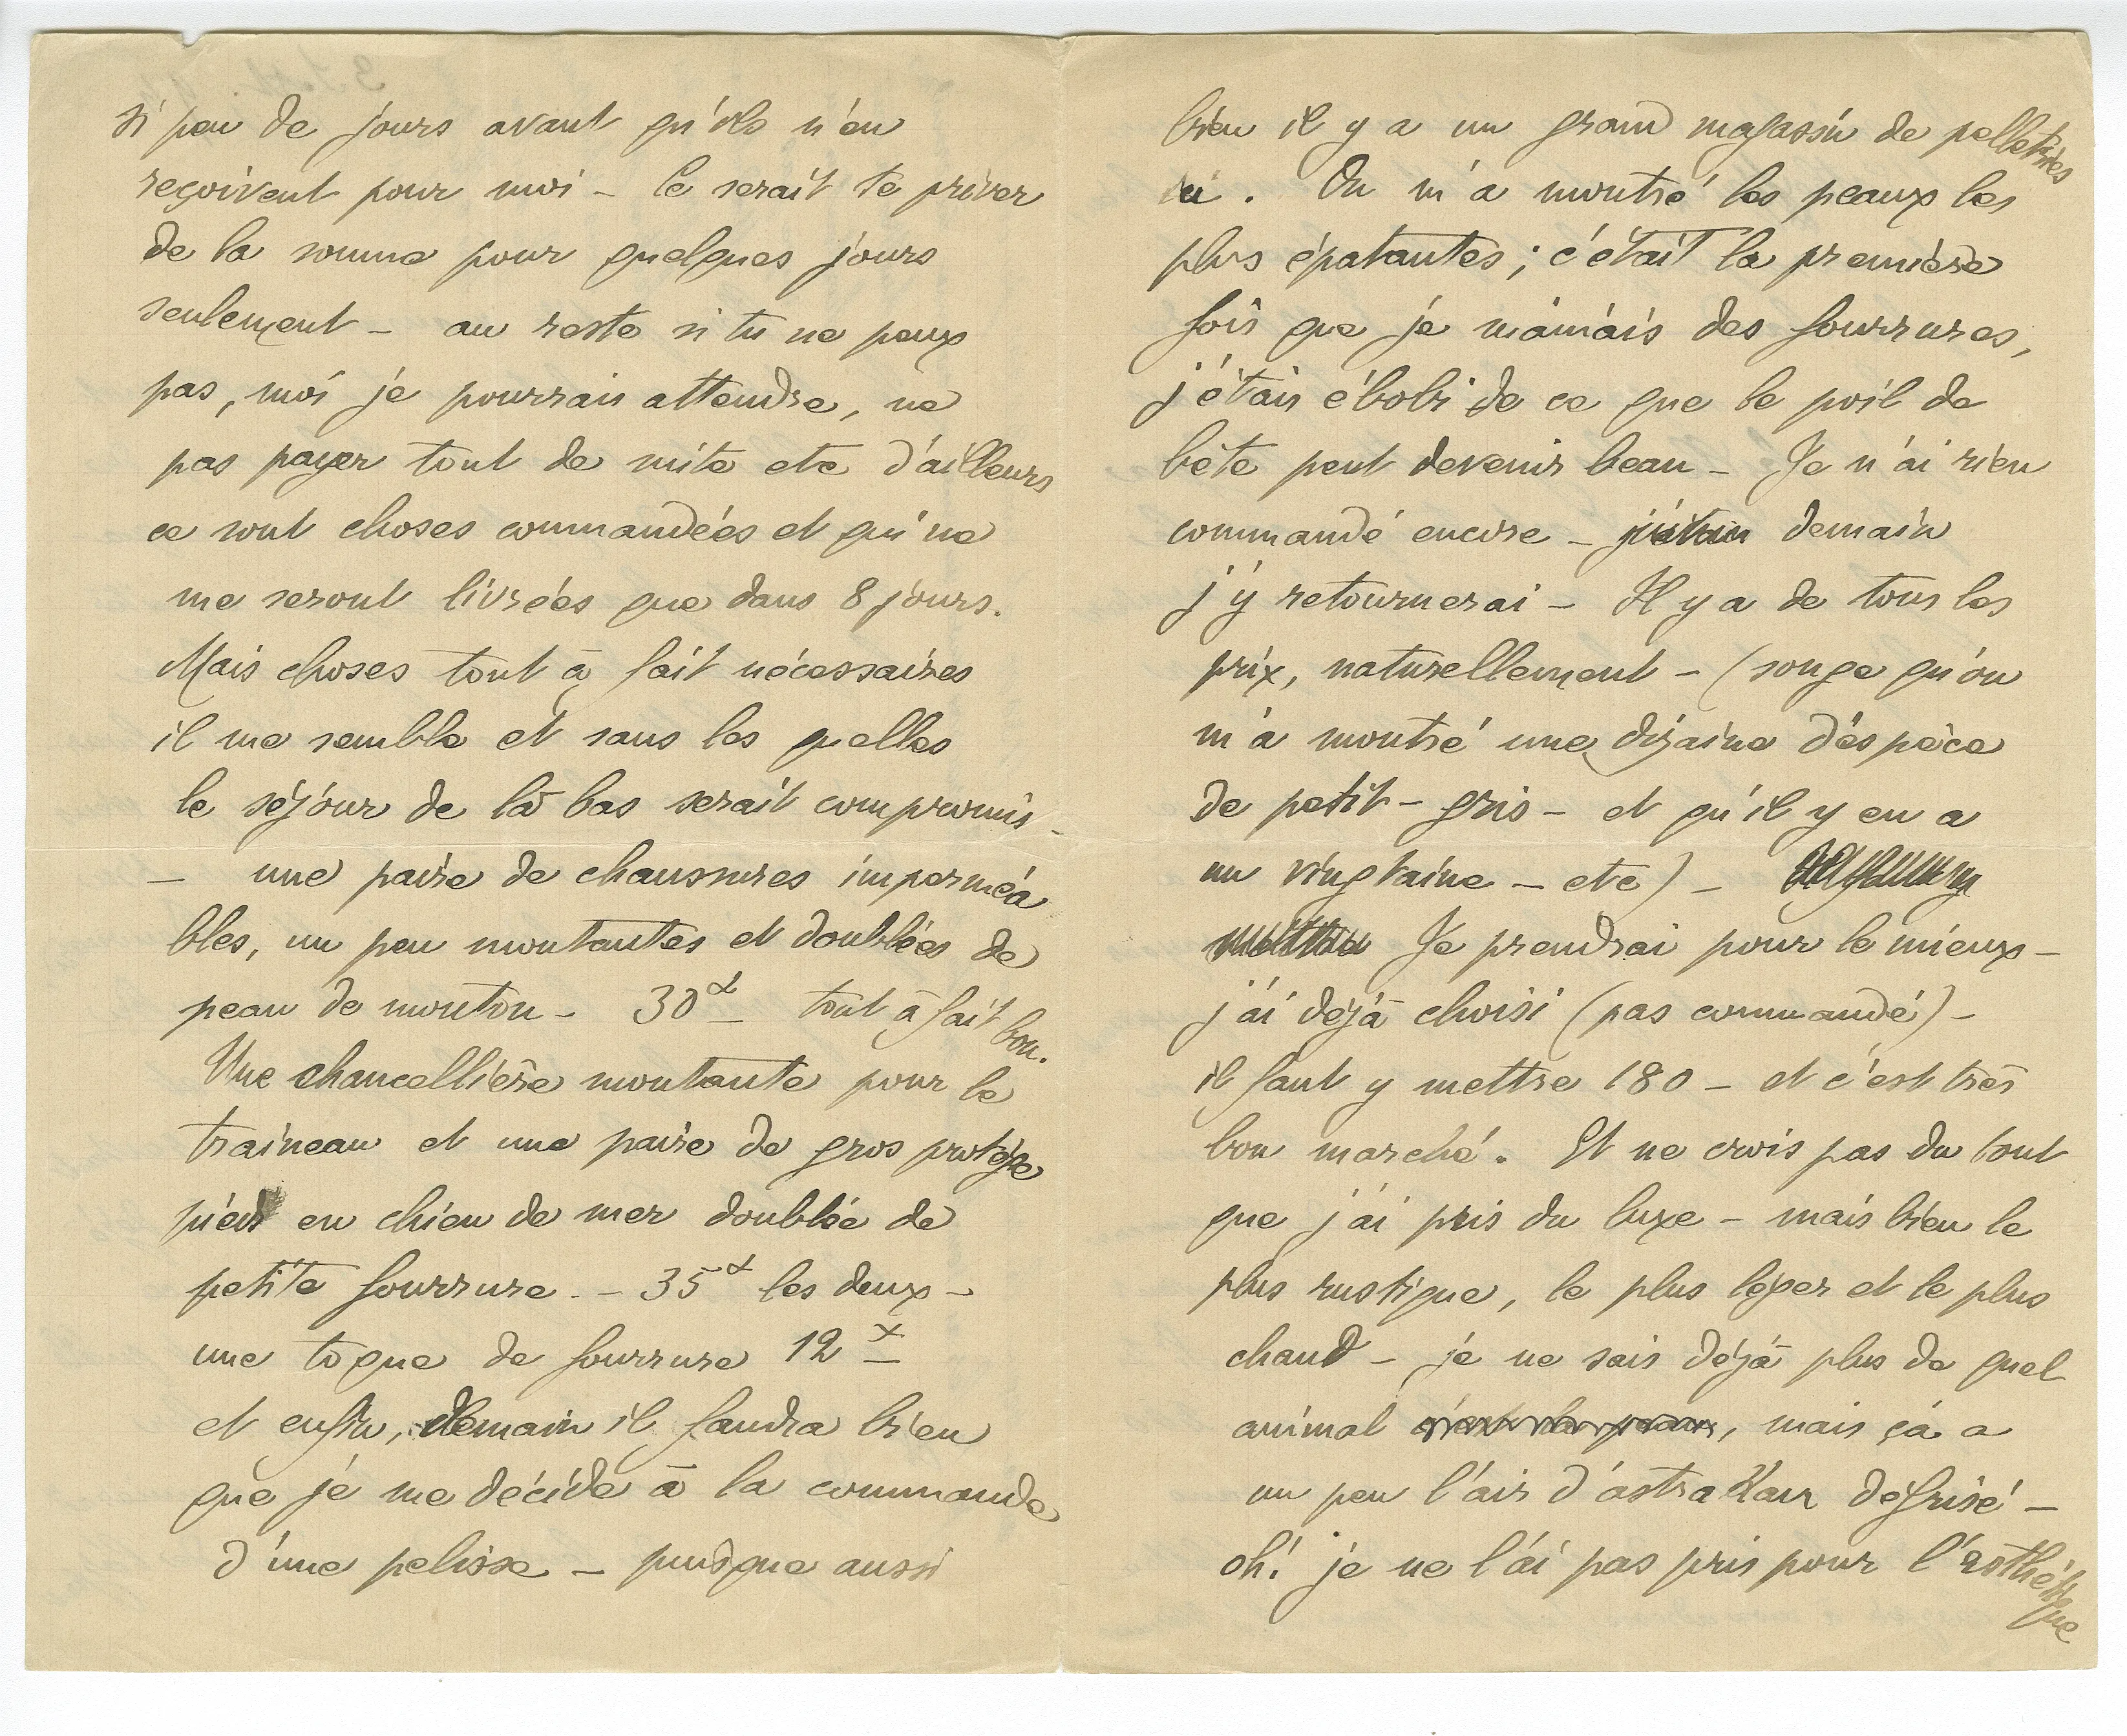 si peu de jours avant qu'ils n'en
reçoivent pour moi - Ce serait te priver
de la somme pour quelques jours
seulement - au reste si tu ne peux
pas, moi je pourrais attendre, ne
pas payer tout de suite etc d'ailleurs
ce sont choses commandées et qui ne
me seront livrées que dans 8 jours.
Mais choses tout à fait nécessaires
il me semble et sans les quelles
le séjour de là bas serait compromis -
- une paire de chaussures imperméa
bles, un peu montantes et doublées de
peau de mouton - 30 tout à fait bon.
Une chancellière montante pour le
traineau et une paire de gros protège
pied en chien de mer doublée de
petite fourrure. - 35 les deux -
une toque de fourrure 12
et enfin, demain il faudra bien
que je me décide à la commande
d'une pelisse - puisque aussi
bien il y a un grand magassin de pelleteries
ici. On m'a montré les peaux les
plus épatantes ; c'était la première
fois que je maniais des fourrures,
j'étais ébobi de ce que le poil de
bête peut devenir beau - Je n'ai rien
commandé encore - demain
j'y retournerai - Il y a de tous les
prix, naturellement - (songe qu'on
m'a montré une dizaine d'espèce
de petit-gris - et qu'il y en a
un vingtaine - etc) -
Je prendrai pour le mieux -
j'ai déjà choisi (pas commandé) -
il faut y mettre 180 - et c'est très
bon marché. Et ne crois pas du tout
que j'ai pris du luxe - mais bien le
plus rustique, le plus léger et le plus
chaud - je ne sais déjà plus de quel
animal c'est la peau, mais çà a
un peu l'air d'astrakan défrisé -
oh! je ne l'ai pas pris pour l'esthétique